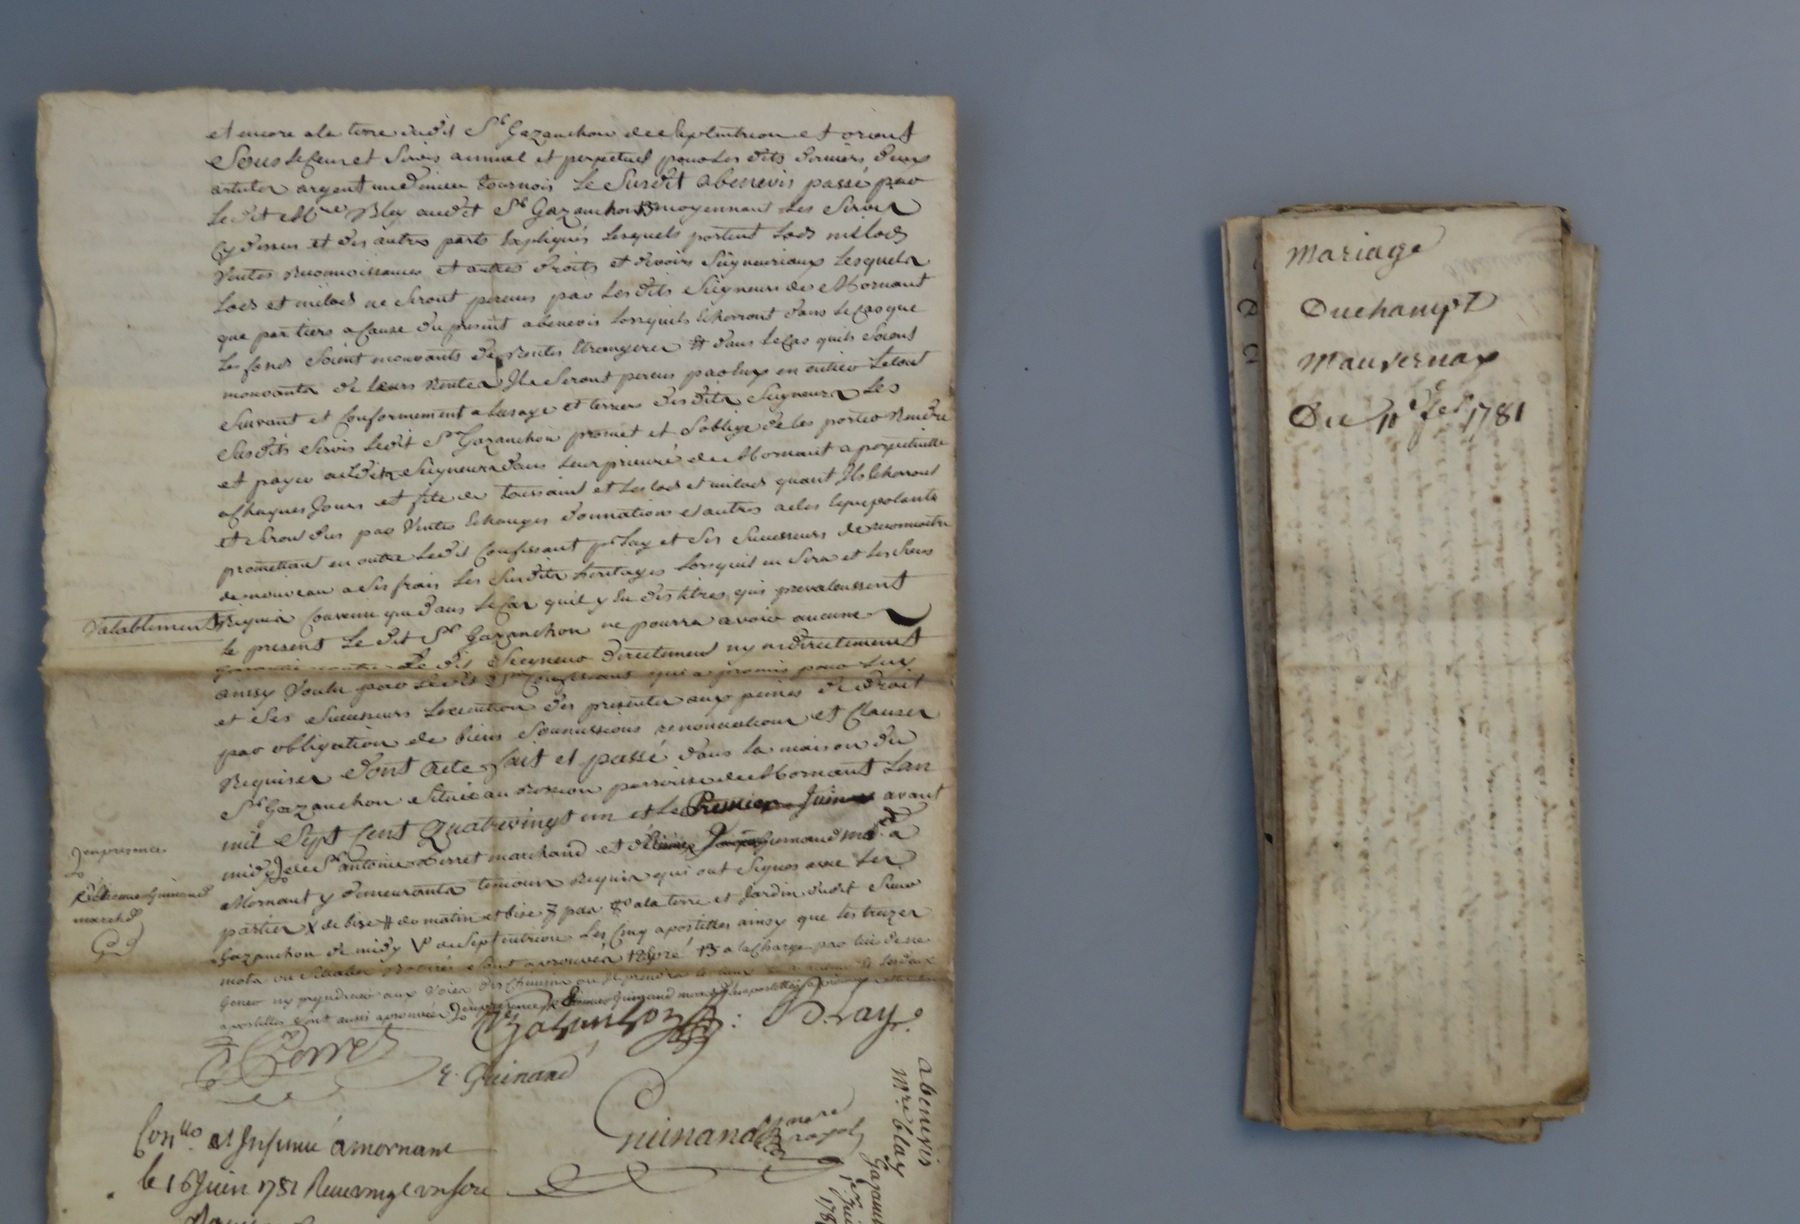 et encore a la terre dudit Sr Gazanchon de Septentrion et orient
Sous le Cens et Servis annuel et perpetuel pour les dits derniers deux
articles argent un denier tournois Le Susdit abenevis passé par
Le dit Mre Blay audit Sr Gazanchon moyennant Les Servis
Cy dessus et des autres parts Expliqués Lesquels portent Lods milods
Ventes Reconnoissances et autres droits et devoirs Seigneuriaux Lesquels
Lods et milods ne Seront percus par Les dits Seigneurs de Mornant
que par tiers a Cause du present abenevis Lorsquils Echerront dans le Cas que
Les fonds Soient mouvants de Rentes Etrangeres # dans le Cas quils Soient
mouvants de leurs Rentes Ils Seront percus par Eux en entier Le tout
Suivant et Conformement a Lusage et terriers desdits Seigneurs Les
Susdits Servis Ledit Sr Gazanchon promet et Soblige de les porter Rendre
et payer auxdits Seigneurs dans Leur prieuré de Mornant a perpetuité
a Chaques Jours et fete de toussaint et Les lods et milods quant Ils Echerront
et Seront dus par Ventes Echanges donnations et autres actes Equipolants
promettant en outre Ledit Confessant pr Luy et Ses Successeurs de reconnoitre
de nouveau a Ses frais Les Susdits heritages Lorsquil en Sera et Les Siens
Valablement Requis Convenu que dans le Cas quil y Eu des titres qui prevalussent
le present Le dit Sr Gazanchon ne pourra avoir aucune
garantie contre Le dit Seigneur directement ny indirectement
ainsy Voulu par Ledit Sr Confessant qui a promis pour Luy
et Ses Successeurs Lexecution des presentes aux peines de droit
par obligation de biens Soumissions renonciations et Clauses
Requises dont acte fait et passé dans la maison du
Sr Gazanchon Située au parroisse de Mornant Lan
mil Sept Cent Quatrevingt un et Le Premier Juin avant
midy Sr antoine Perret marchand et
Mornant y demeurants temoins Requis qui ont Signés avec Les
parties X de bise # du matin et bise par a la terre et Jardin dudit Sieur
Gazanchon de midy V du Septentrion Les Cinq apostilles ainsy que les treizes
mots Rature Sont approuvés a la Charge par lui de ne
apostilles Sont aussi approuvées
en presence
Etienne Guinand
marchd
Perret
Gazanchon
Blay
E. Guinand
Guinand nore royal
Conllé et Insinué a mornant
le 16 Juin 1781
abenevis
Mre blay
Gazanch
1er Jui
178
Mariage
Duchampt
Mauvernay
Du 1781